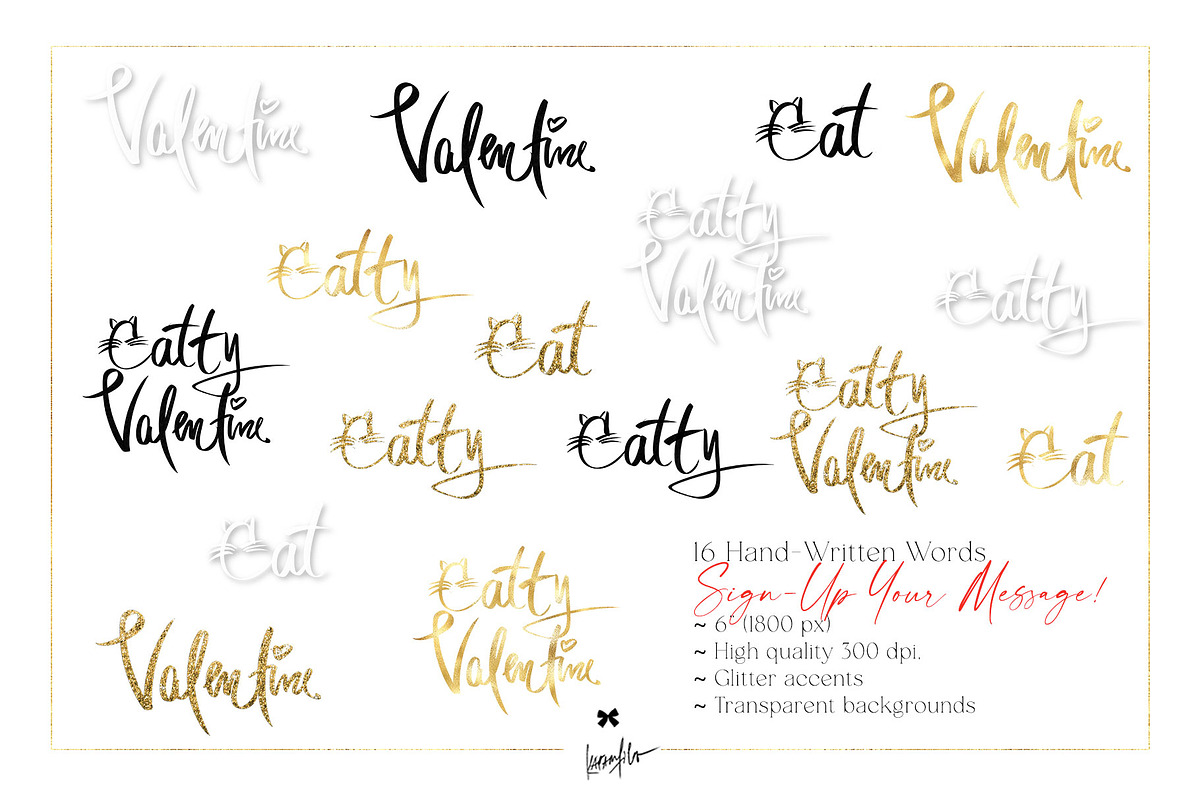 Valentine
Valentine
Cat
Valentine
Catty
Valentine
Catty
Catty
Cat
Catty
Valentine
Catty
Catty
Catty
Valentine
Cat
Cat
Catty
Valentine
Valentine
16 Hand-Written Words
Sign-Up Your Message!
~ 6" (1800 px)
~ High quality 300 dpi.
~ Glitter accents
~ Transparent backgrounds